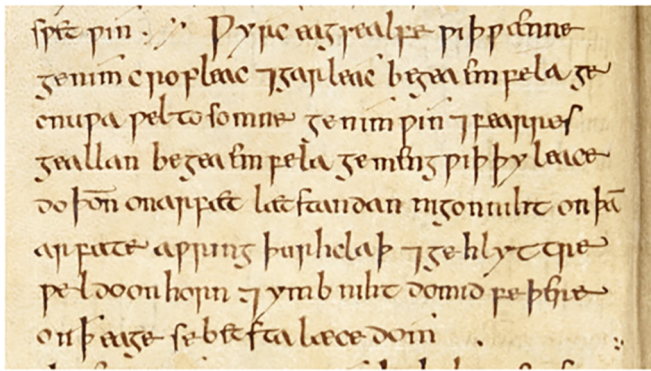 spet ƿin . ⁊ Ƿyrc eagsealfe ƿiþ ƿænne
genim cropleac ⁊ garleac begea emfela ge
cnuƿa ƿel tosomne genim ƿin ⁊ fearres
geallan begea emfela gemeng ƿiþ þy leace
do þoñ on arfæt læt standan nigon niht on þā
arfate aƿring þurh claþ ⁊ gehlyttre
ƿel do on horn ⁊ ymb niht do mid feþere
on ꝥ eage se betsta læcedom .